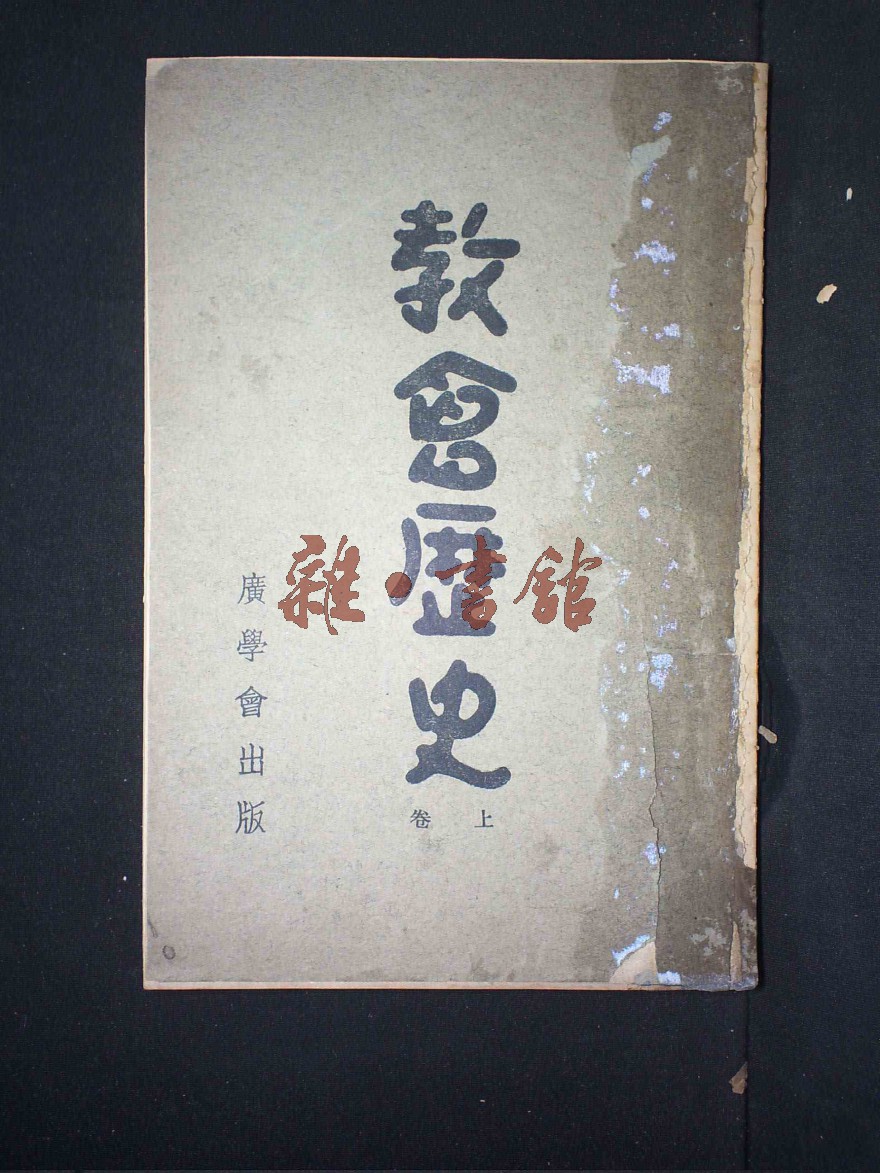 教會歷史
上卷
廣學會出版
雜·書館